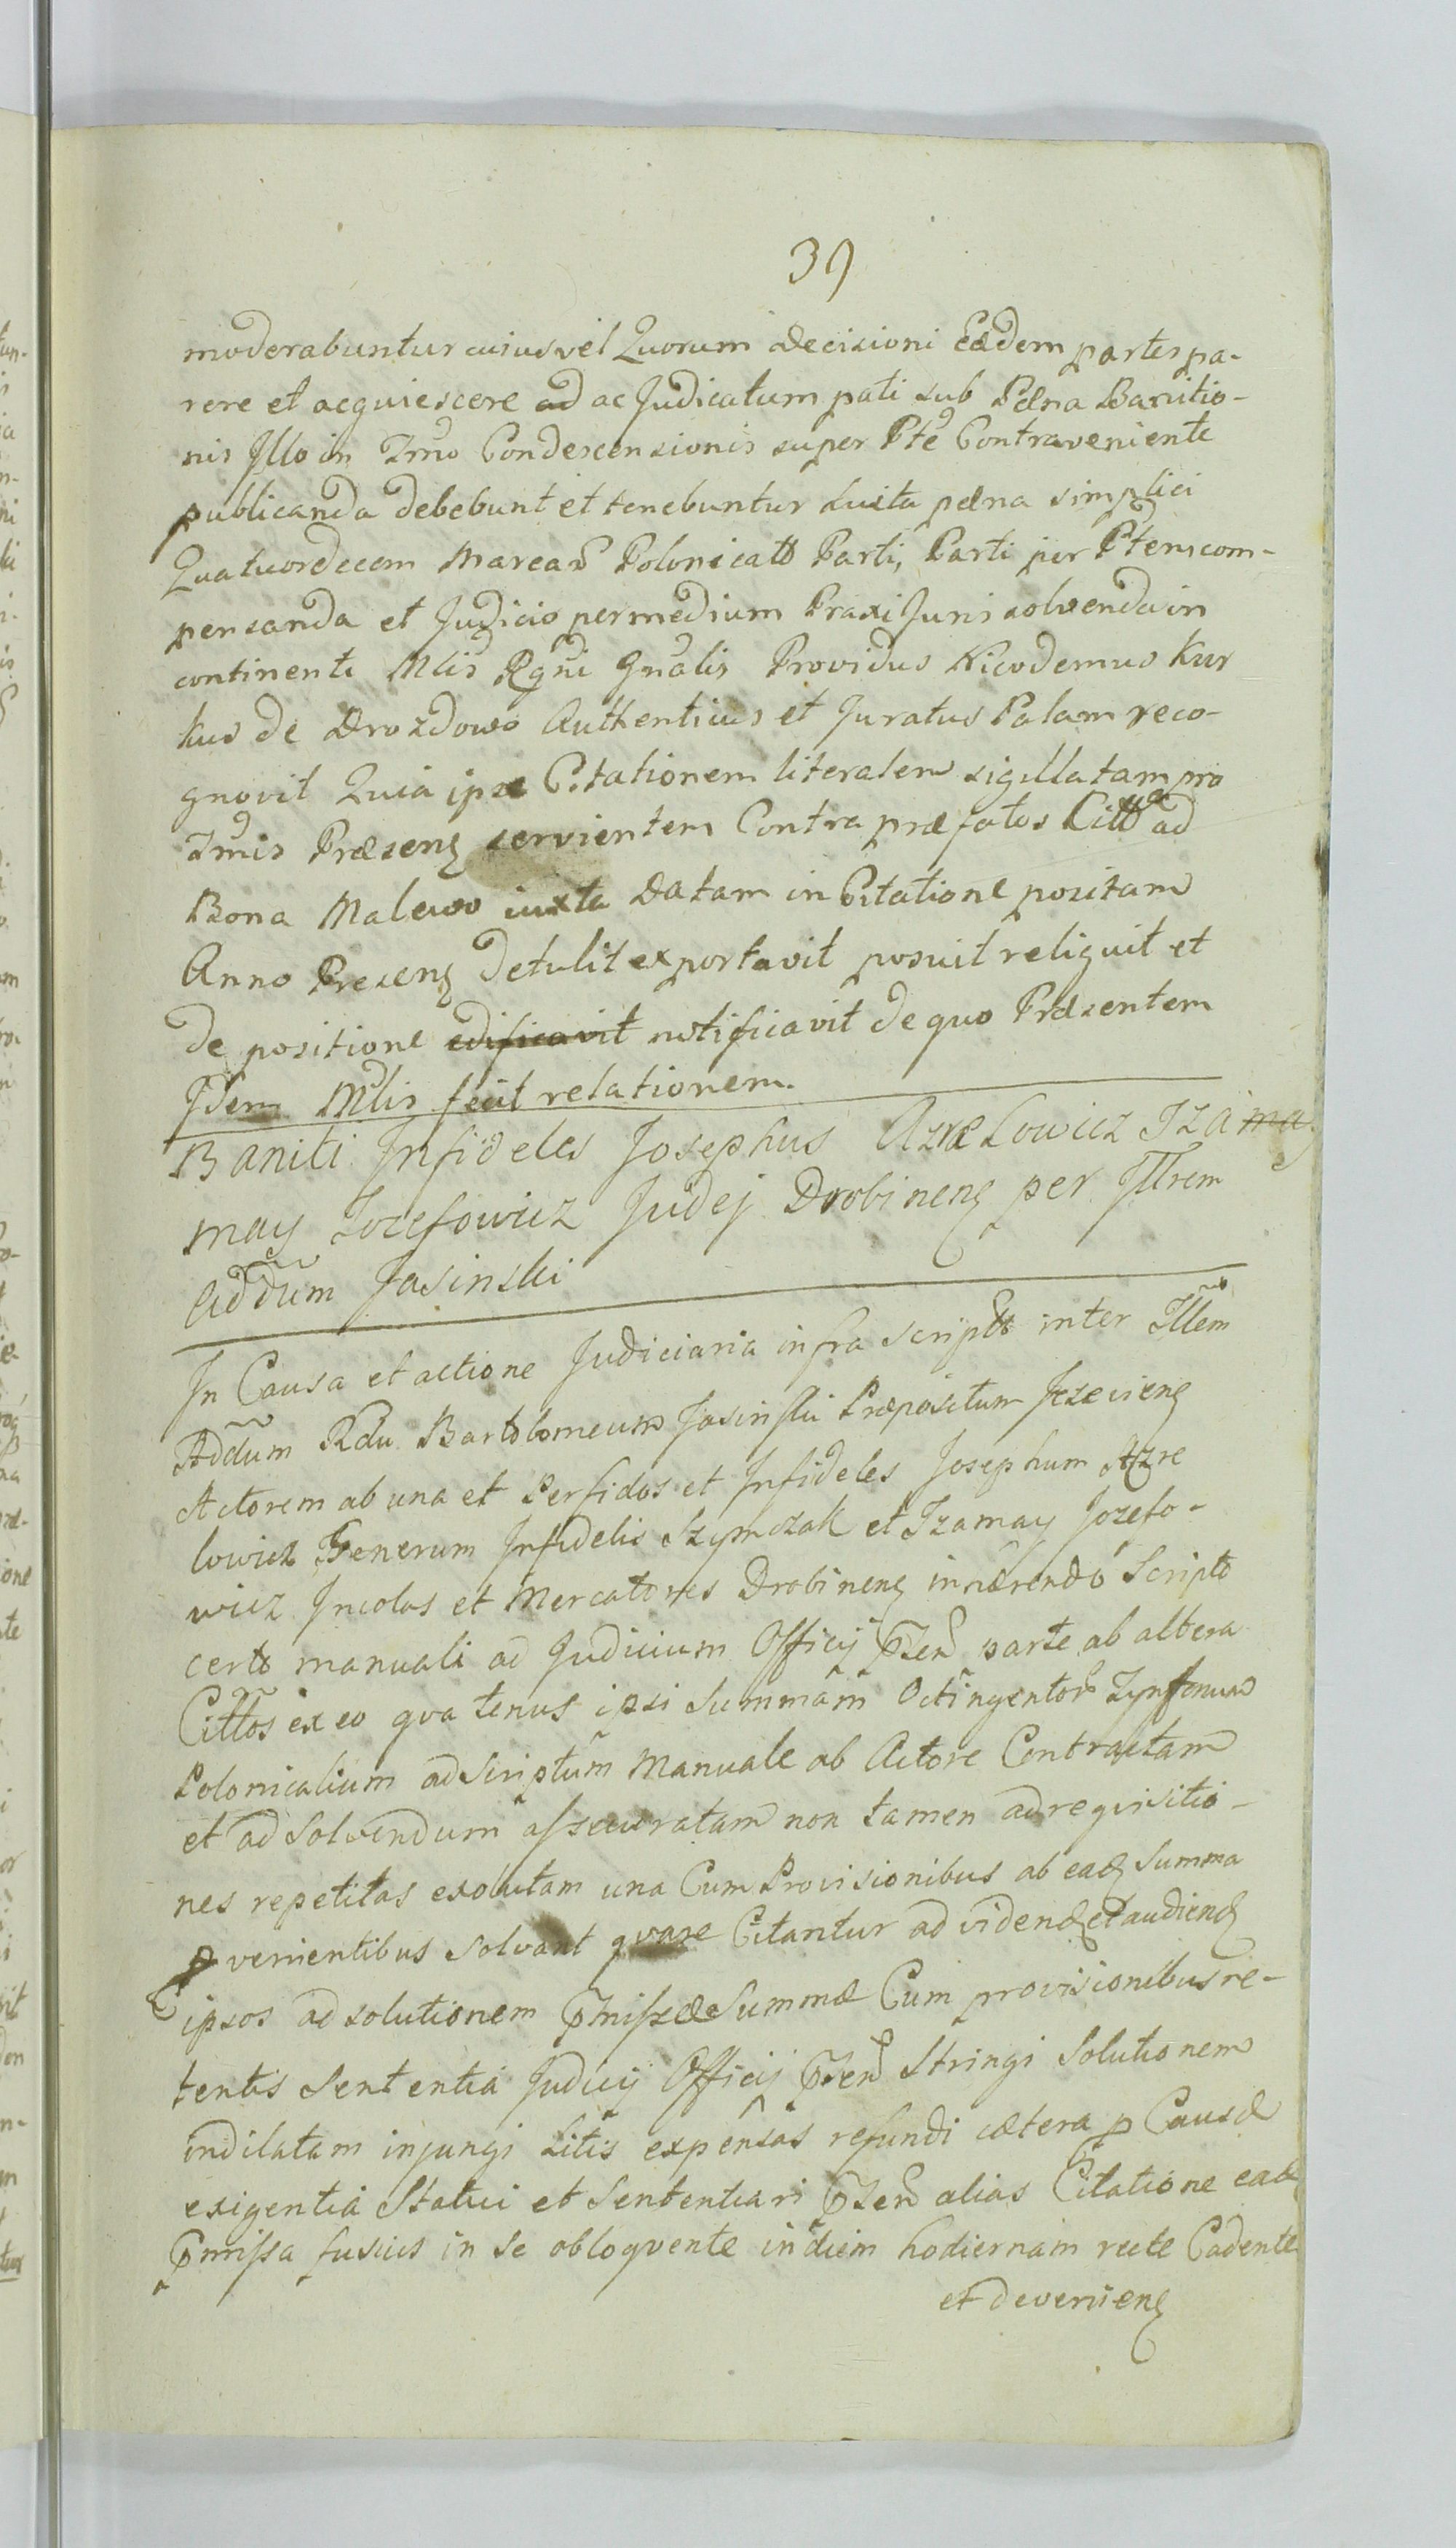 39
moderabuntur cuiusvel Quorum decisioni Eædem partes pa-
rere et acquiescere ad ac Judicatum pati sub Pæna Banitio-
nis Illo in Trno Condescensionis super Pte Contraveniente
publicanda debebunt et tenebuntur Luita pæna simplici
Quatuordecem Marcar Polonicalt Parti, Parti per Ptem com-
pensanda et Judicio permedium Praxi Juris solvenda in
continenti Mlis Rgni Gnalis Providus Nicodemus Kur
kus de Drozdowo Authenticus et Juratus Palam reco-
gnovit Quia ipse Citationem literalem sigillatam pro
Trmis Præsens servientem Contra præfatos Citt ad
Bona Malewo iuxta Datam in Citatione positam
Anno Presens detulit exportavit posuit reliquit et
de positione edificavit notificavit de quo Præsentem
Idem Mlis fecit relationem.
Baniti Infideles Josephus Azrelowicz Iza ma
may Jozefowicz Judej Drobinens per Illrem
Addum Jasinski
In Causa et actione Judiciaria infra scriptt inter Illem
Addum Rdu Bartolomeum Jasinski Præpositum Jezeviens
Actorem ab una et Perfidos et Infideles Josephum Azre
lowicz Generum Infidelis Szymczak et Izamay Jozefo-
wicz Incolas et Mercatores Drobinens innærendo Scripto
certo manuali ad Judicium Officij Pzen parte ab altera
Cittos ex eo qva tenus ipsi Summam Octingentor Tynfonum
Polonicalium ad Scriptum Manuale ab Actore Contractam
et ad Solvendum assecuratam non tamen ad reqvisitio-
nes repetitas exolutam una Cum Provisionibus ab ead Summa
p venientibus Solvant qvare Citantur ad vidend et audiend
ipsos ad solutionem pmissæ Summæ Cum provisionibus re-
tentis Sententia Judicij Officij Pzen Stringi Solutionem
indilatam injungi Litis expensas refundi cætera p Causæ
exigentia Statui et Sententiari Pzen alias Citatione ead
pmissa fusius in se obloqvente in diem hodiernam recte Cadente
et deveniens